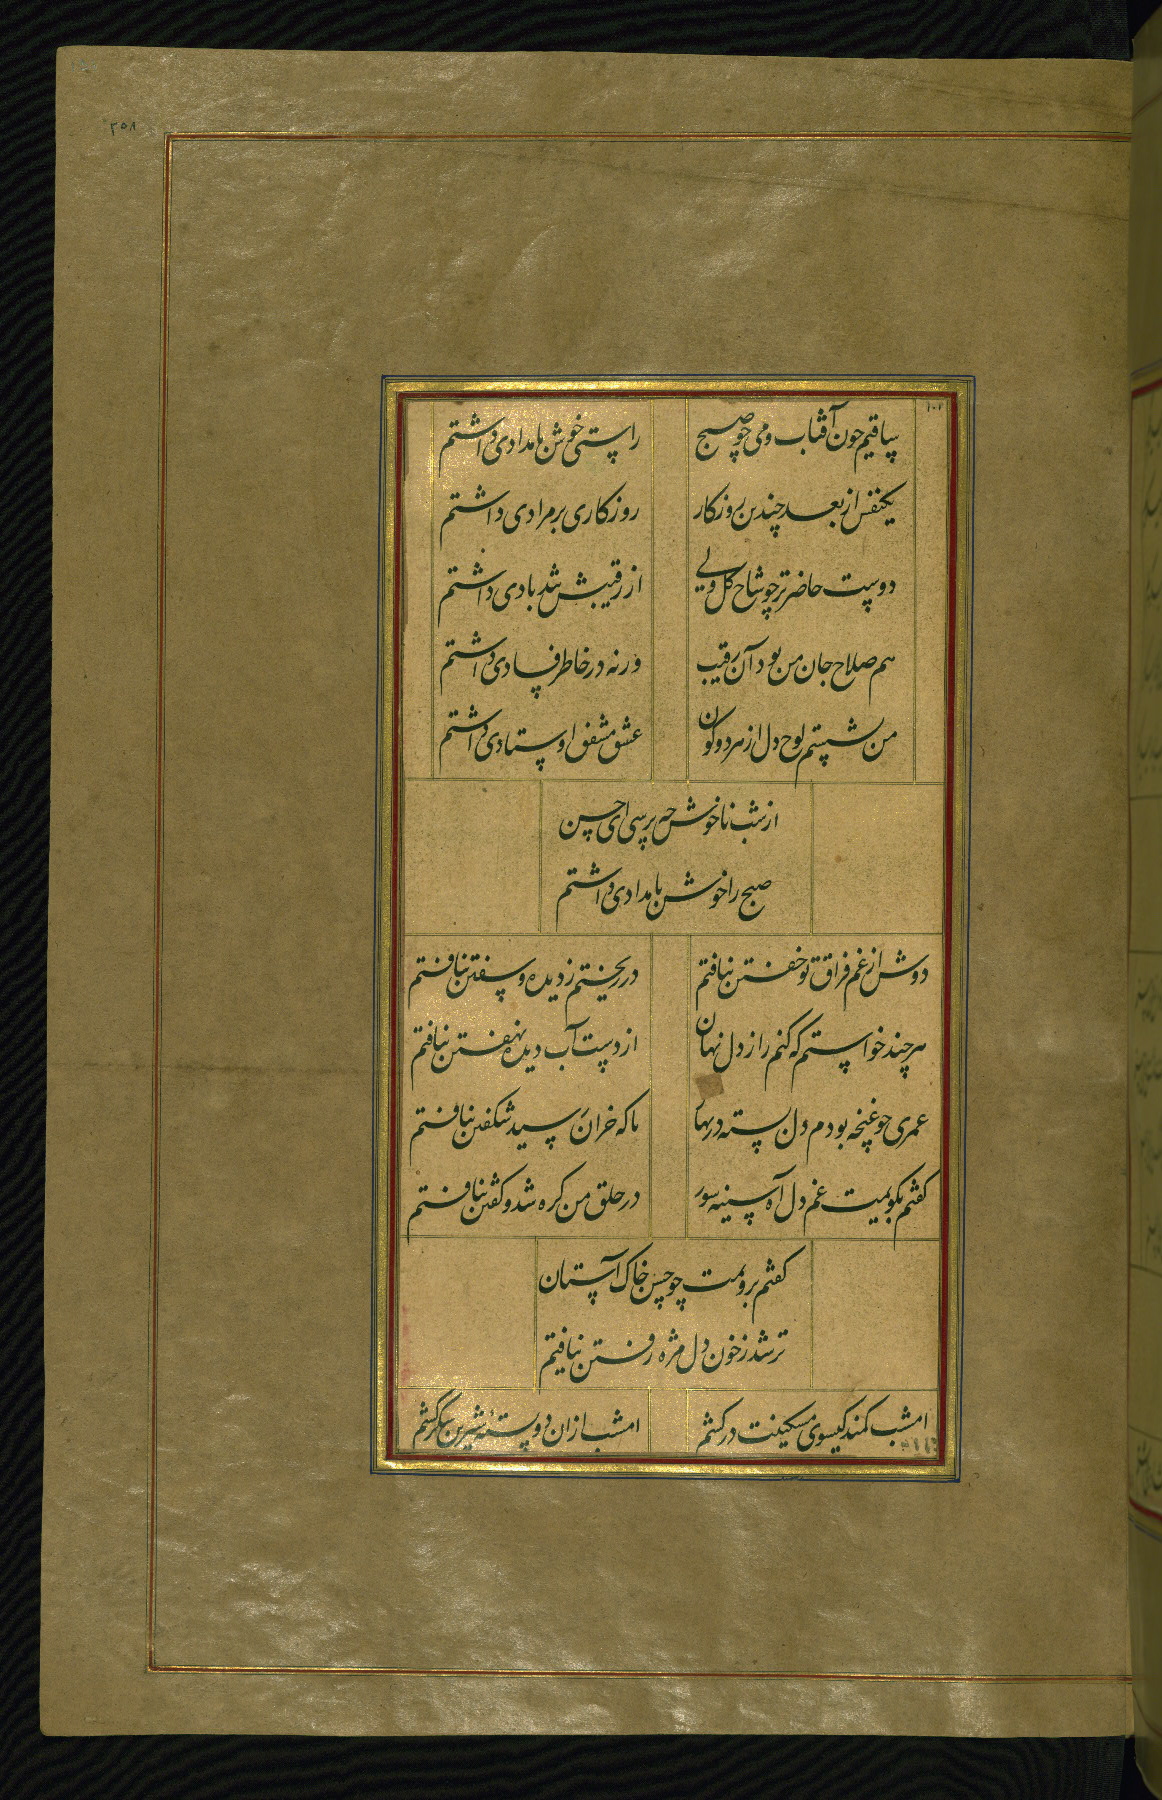 ۲۵۸
ساقیم چون آفتاب و می چو صبح راستی خوش بامدادی داشتم
یکنفس از بعد چندین روزکار روزکاری بر مرادی داشتم
دوست حاضرتر چو شاخ کل ولی از رقیبش تند بادی داشتم
هم صلاح جان من بود آن رقیب ورنه در خاطر فسادی داشتم
من شستم لوح دل از هر دو کون عشق مشفق اوستادی داشتم
از شب ناخوش چه پرسی ای حسن
صبح را خوش بامدادی داشتم
دوش از غم فراق تو خفتن نیافتم در ریختم ز دیده و سفتن نیافتم
هر چند خواستم که کنم راز دل نهان از دست آب دیده نهفتن نیافتم
عمری چو غنچه بودم دل بسته در بهار تا که خزان رسید شکفتن نیافتم
کفتم بکویمت غم دل آه سینه سوز در حلق من کره شد و کفتن نیافتم
کفتم برویمت چو حسن خاک آستان
تر شد ز خون دل مژه رفتن نیافتم
امشب کمند کیسوی مسکینت در کشم امشب از ان دو پسته شیرین شکر کشم